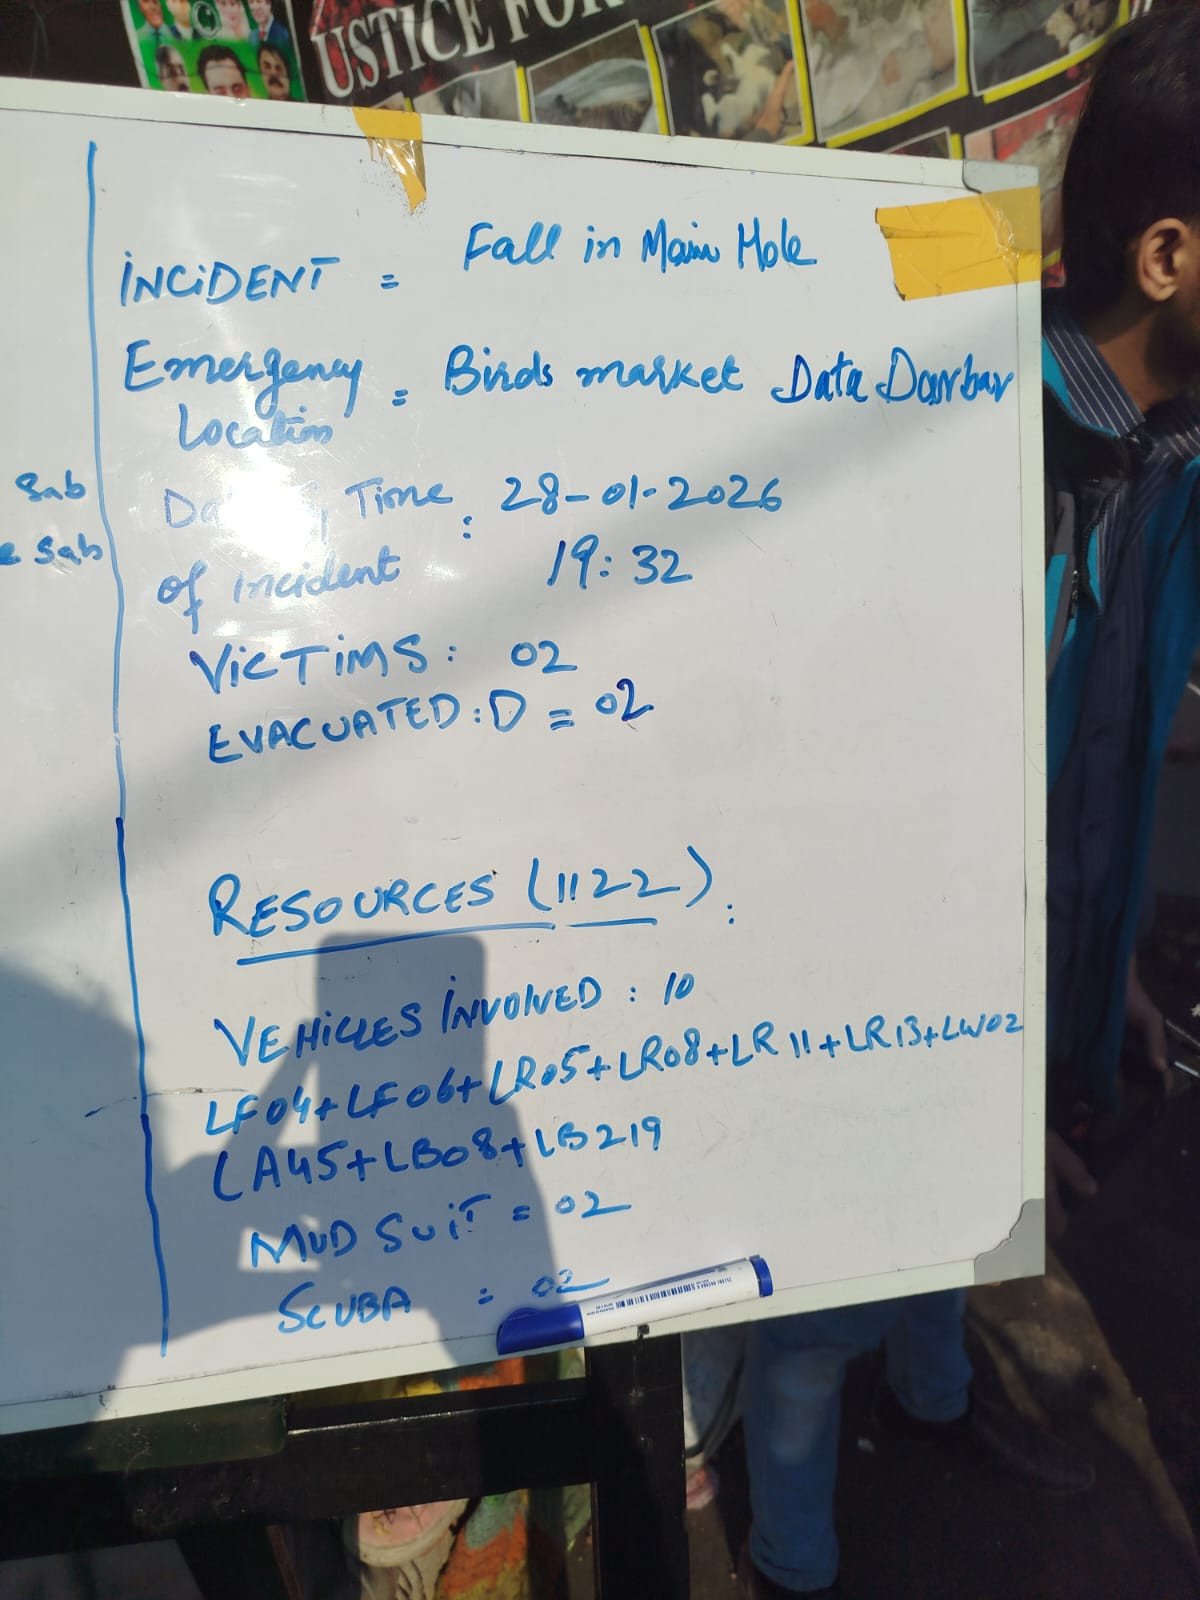 USTICE FOR
INCIDENT = Fall in Main Hole
Emergency Location = Birds market Data Darbar
Sab
e Sab
Time : 28-01-2026
of incident 19:32
VICTIMS: 02
EVACUATED: D = 02
RESOURCES (1122) :
VEHICLES INVOLVED : 10
LF04+LF06+LR05+LR08+LR11+LR13+LW02
LA45+LB08+LB219
MUD SUIT = 02
SCUBA : 02